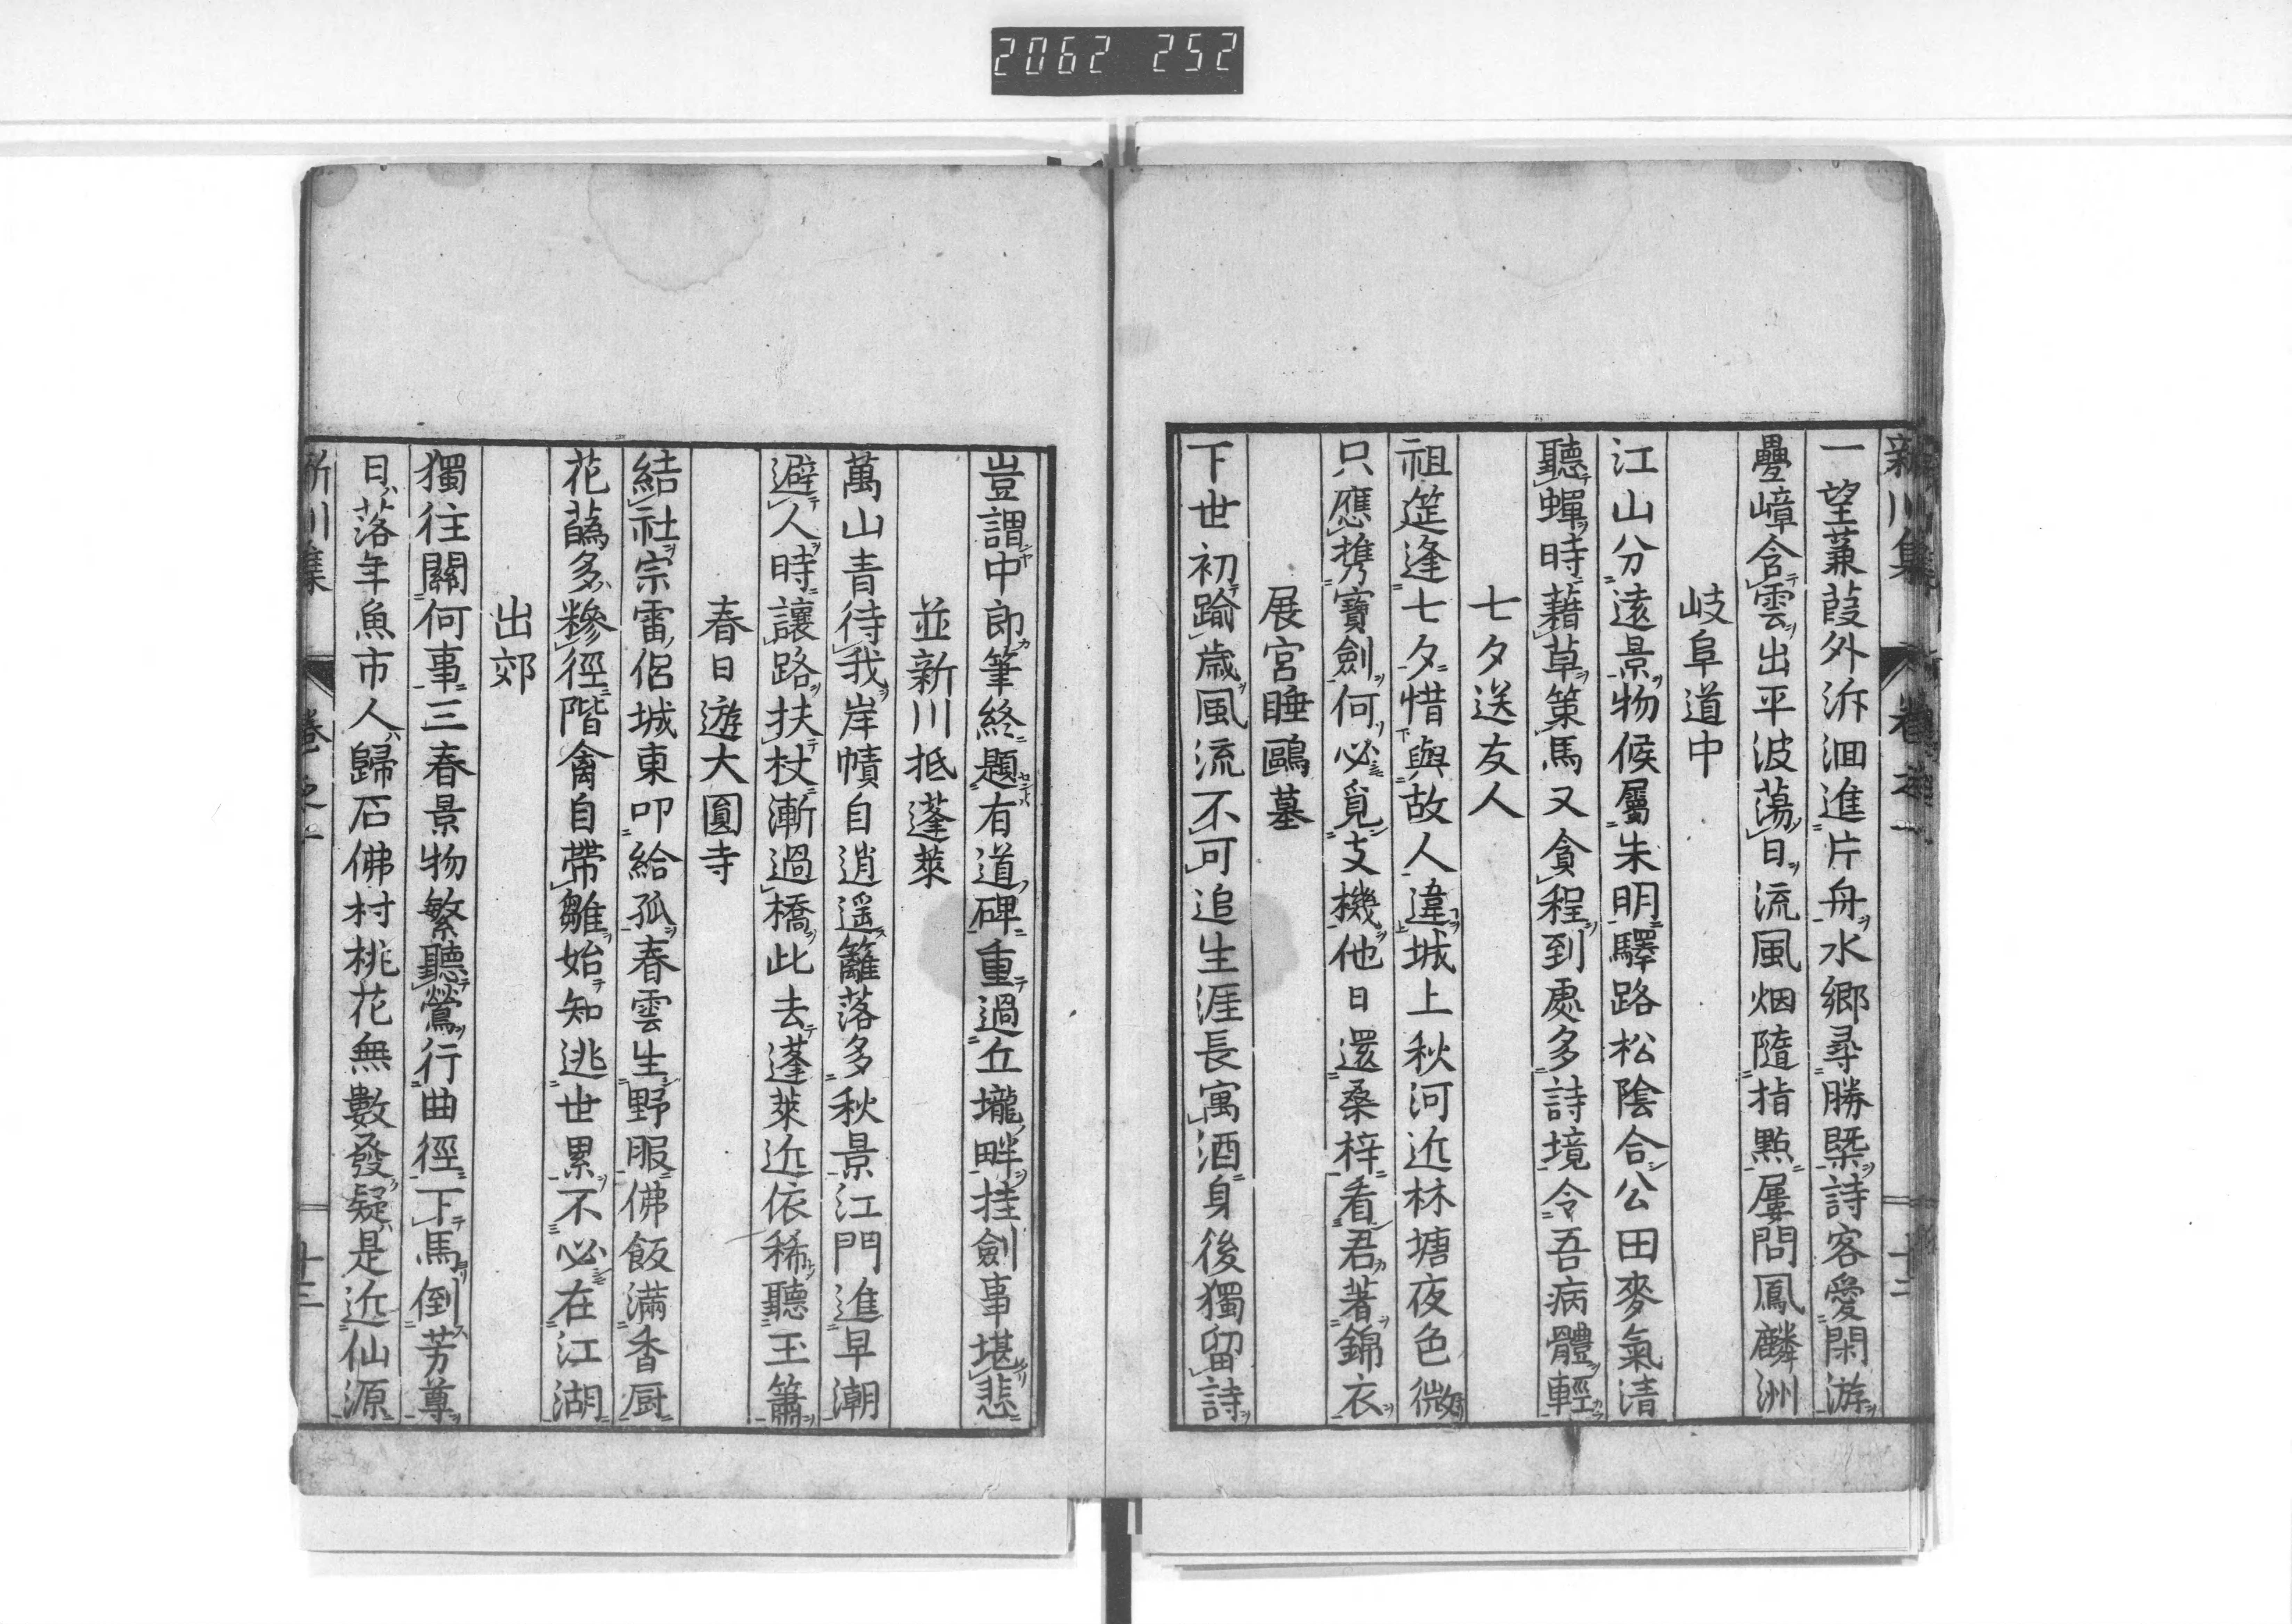 2062 252
新川集 卷之一 十二
一望蒹葭外泝洄進片舟水鄉尋勝槩詩客愛閑游
疊嶂含雲出平波蕩日流風烟隨指點屢問鳳麟洲
岐阜道中
江山分遠景物候屬朱明驛路松陰合公田麥氣清
聽蟬時藉草策馬又貪程到處多詩境令吾病體輕
七夕送友人
祖筵逢七夕惜與故人違城上秋河近林塘夜色微
只應携寶劍何必覓支機他日還桑梓看君著錦衣
展宮睡鷗墓
下世初踰歲風流不可追生涯長寓酒身後獨留詩
豈謂中郎筆終題有道碑重過丘壠畔挂劍事堪悲
並新川抵蓬萊
萬山青待我岸幘自逍遥籬落多秋景江門進早潮
避人時讓路扶杖漸過橋此去蓬萊近依稀聽玉簫
春日遊大圓寺
結社宗雷侶城東叩給孤春雲生野服佛飯滿香厨
花蘤多糝徑階禽自帶雛始知逃世累不必在江湖
出郊
獨往關何事三春景物繁聽鶯行曲徑下馬倒芳尊
日落年魚市人歸石佛村桃花無數發疑是近仙源
新川集 卷之一 十三